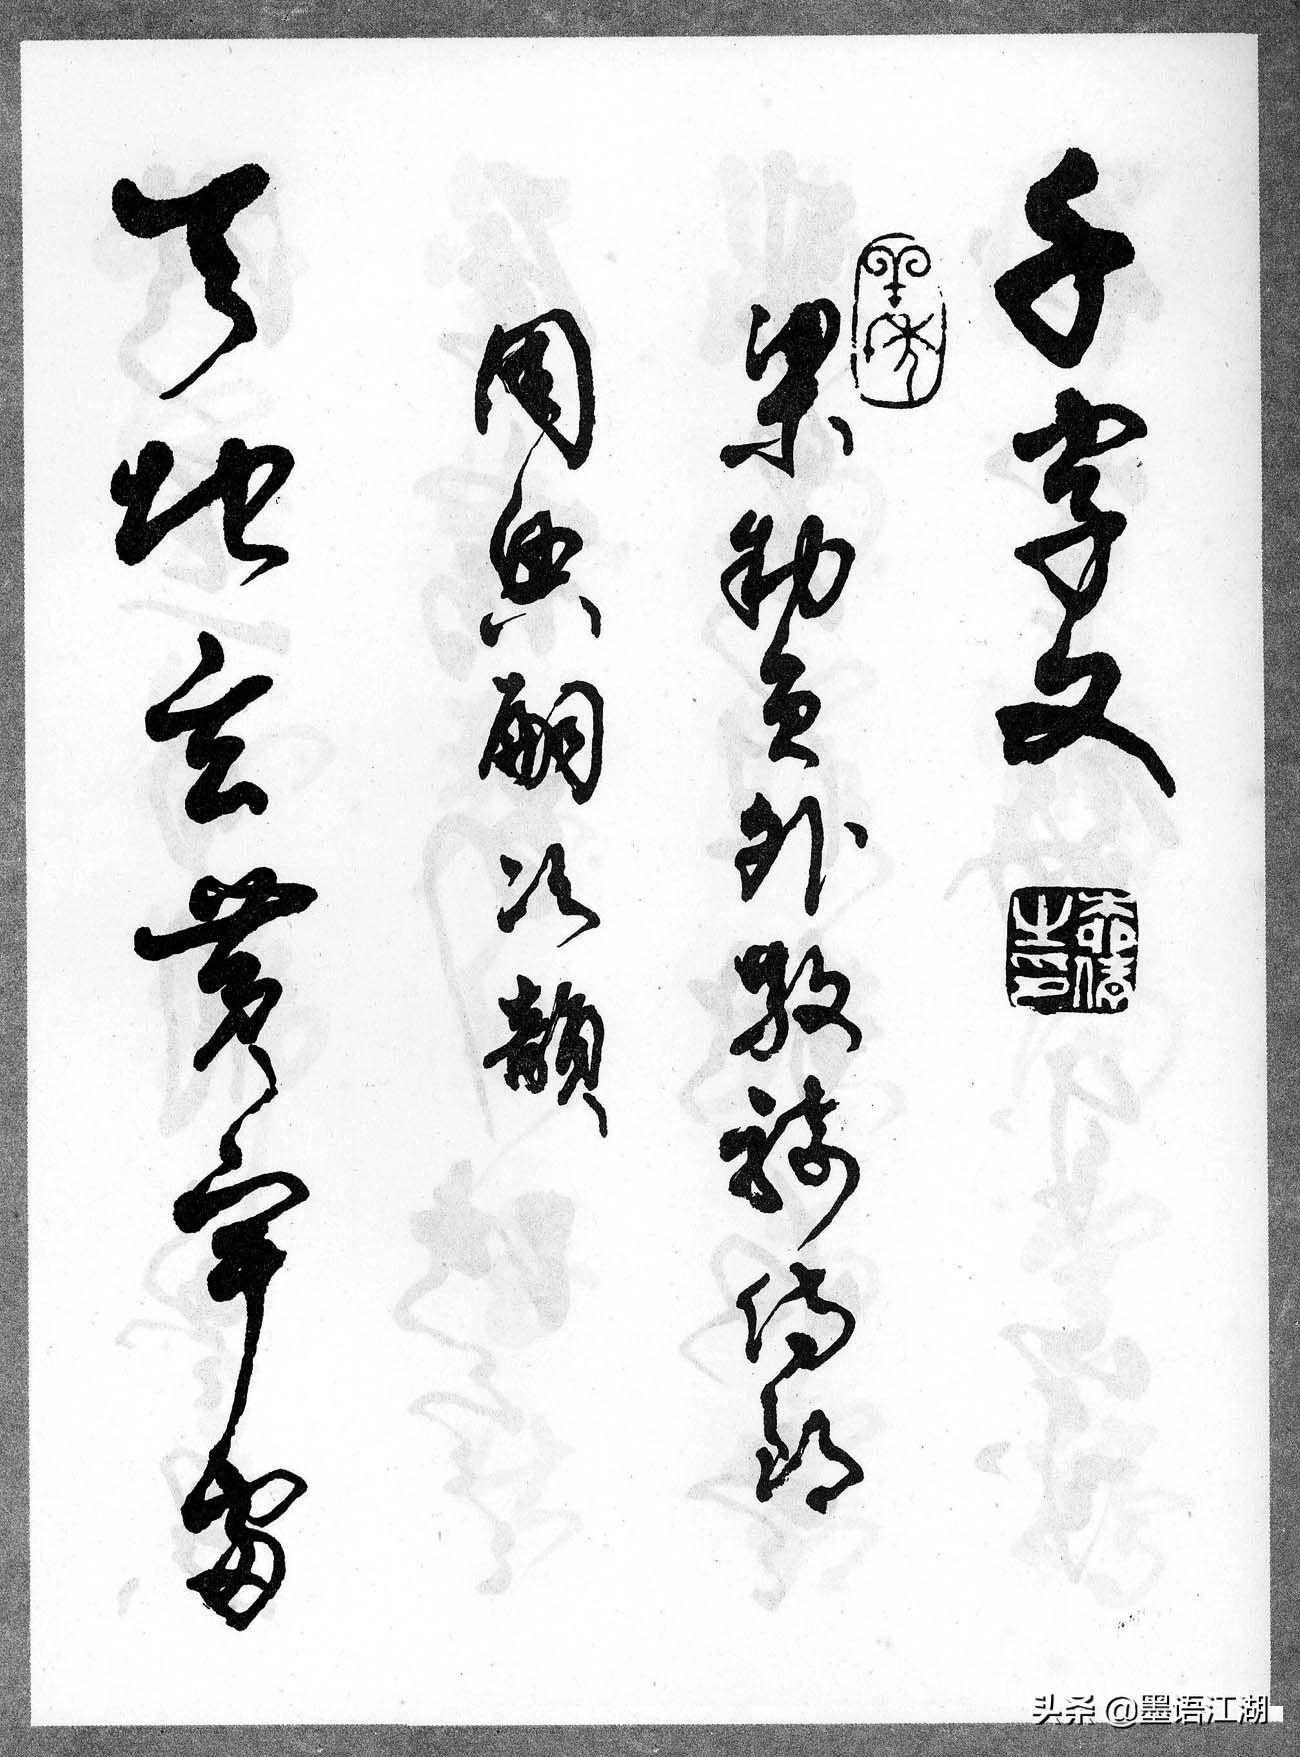 千字文
梁勅員外散騎侍郎
周興嗣次韻
天地玄黄宇宙
头条 @墨语江湖